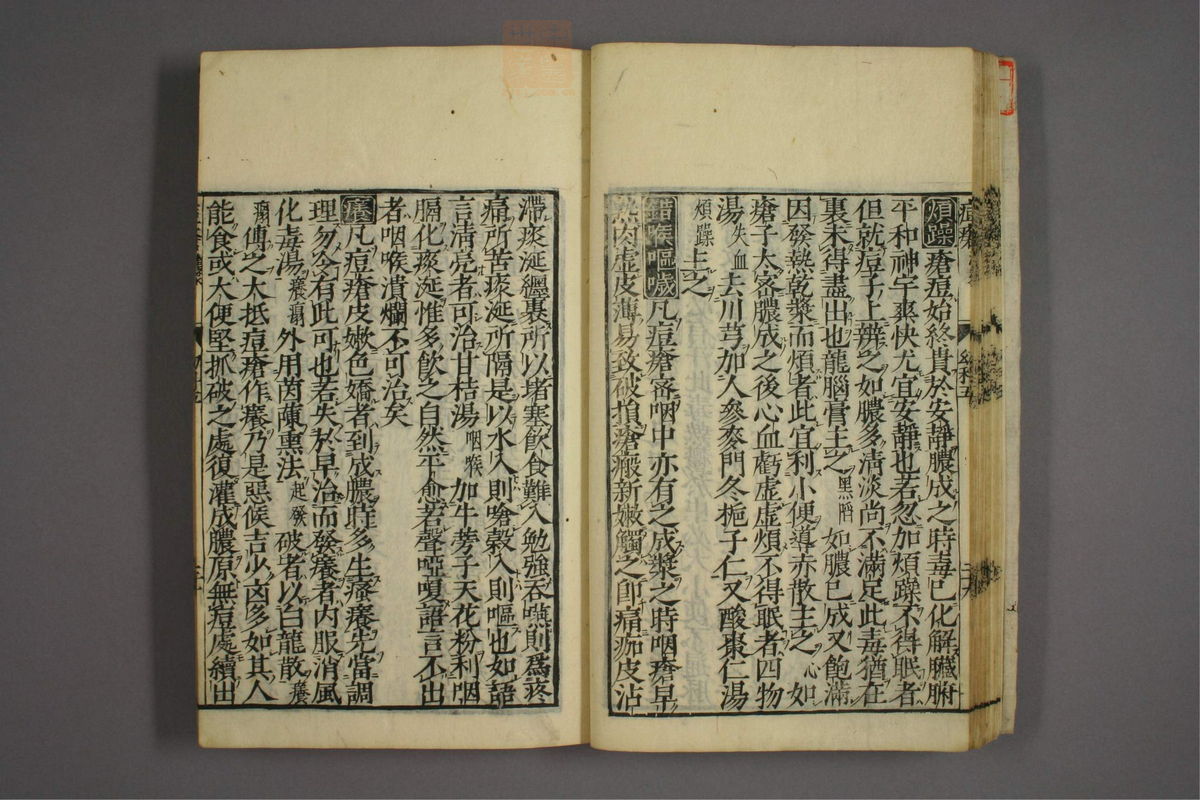 煩躁瘡痘始終貴於安靜膿成之時毒已化解臟腑
平和神字爽快尤宜安靜也若忽加煩躁不得眠者
但就痘子上辨之如膿多清淡尚不滿足此毒猶在
裏未得盡出也龍腦膏主之黑陷如膿已成又飽滿
因發熱乾漿而煩者此宜利小便導赤散主之心如
瘡子太密膿成之後心血虧虛虛煩不得眠者四物
湯失血去川芎加人參麥門冬梔子仁又酸棗仁湯
煩躁主之
錯喉嘔噦凡痘瘡密咽中亦有之成漿之時咽瘡早
熟肉虛皮薄易致破損瘡瘢新嫩觸之即痛痂皮沾
滯痰涎纏裹所以堵塞飲食難入勉強吞嚥則爲疼
痛所苦痰涎所隔是以水入則嗆穀入則嘔也如語
言清亮者可治甘桔湯咽喉加牛蒡子天花粉利咽
膈化痰涎惟多飲之自然平愈若聲啞嗄語言不出
者咽喉潰爛不可治矣
癢凡痘瘡皮嫩色嬌者到成膿時多生瘙癢先當調
理勿令有此可也若失於早治而發癢者內服消風
化毒湯癢瘍外用茵蔯熏法起發破者以白龍散癢
瘍傅之大抵痘瘡作癢乃是惡候吉少凶多如其人
能食或大便堅抓破之處復灌成膿原無痘處續出